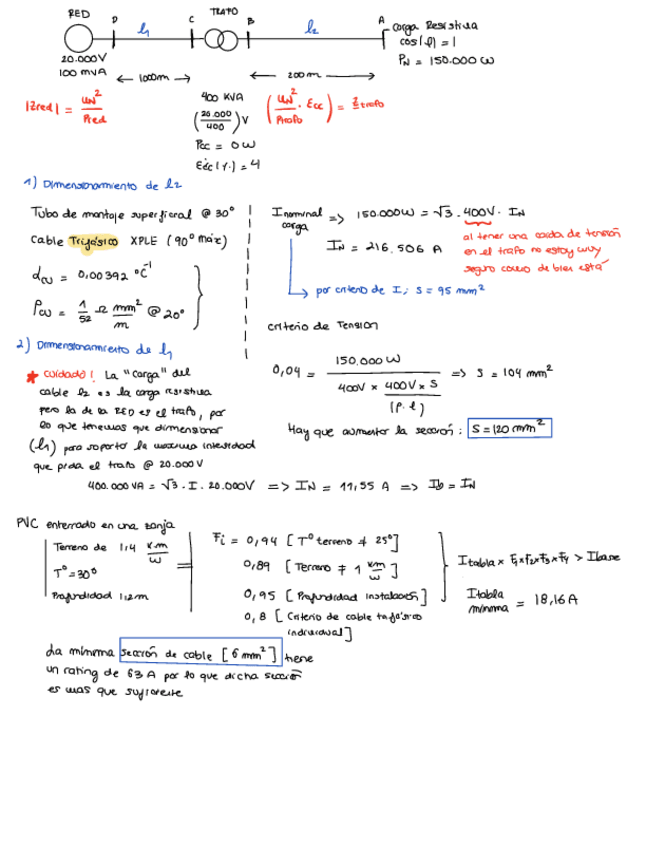 RED
D
l1
C
TRAFO
B
l2
A
carga Resistiva
cos(φ) = 1
PN = 150.000 W
20.000V
100 MVA
← 1000m →
← 200m →
|Zred| = UN² / Pred
400 KVA
(20.000 / 400) V
Pcc = 0 W
Ecc (%) = 4
(UN² / Ptrafo · Ecc) = Ztrafo
1) Dimensionamiento de l2
Tubo de montaje superficial @ 30°
Cable Trifásico XPLE (90° max)
αcu = 0,00392 °C⁻¹
ρcu = 1/52 Ω mm²/m @ 20°
I nominal carga => 150.000W = √3 · 400V · IN
IN = 216,506 A
al tener una caida de tensión
en el trafo no estoy muy
seguro como de bien está
por criterio de I; S = 95 mm²
criterio de Tension
0,04 = 150.000 W / (400V × 400V × S / (ρ·l)) => S = 104 mm²
Hay que aumentar la sección: S = 120 mm²
2) Dimensionamiento de l1
* cuidado! La "carga" del
cable l2 es la carga resistiva
pero la de la RED es el trafo, por
lo que tenemos que dimensionar
(l1) para soportar la maxima intensidad
que pida el trafo @ 20.000 V
400.000 VA = √3 · I · 20.000V => IN = 11,55 A => Ib = IN
PVC enterrado en una zanja
Terreno de 1,4 K·m/W
T° = 30°
Profundidad 1,2m
Fi = 0,94 [T° terreno ≠ 25°]
0,89 [Terreno ≠ 1 K·m/W]
0,95 [Profundidad instalación]
0,8 [Criterio de cable trifásico
individual]
Itabla × F1×F2×F3×F4 > Ibase
Itabla minima = 18,16 A
La mínima sección de cable [6 mm²] tiene
un rating de 63 A por lo que dicha sección
es mas que suficiente